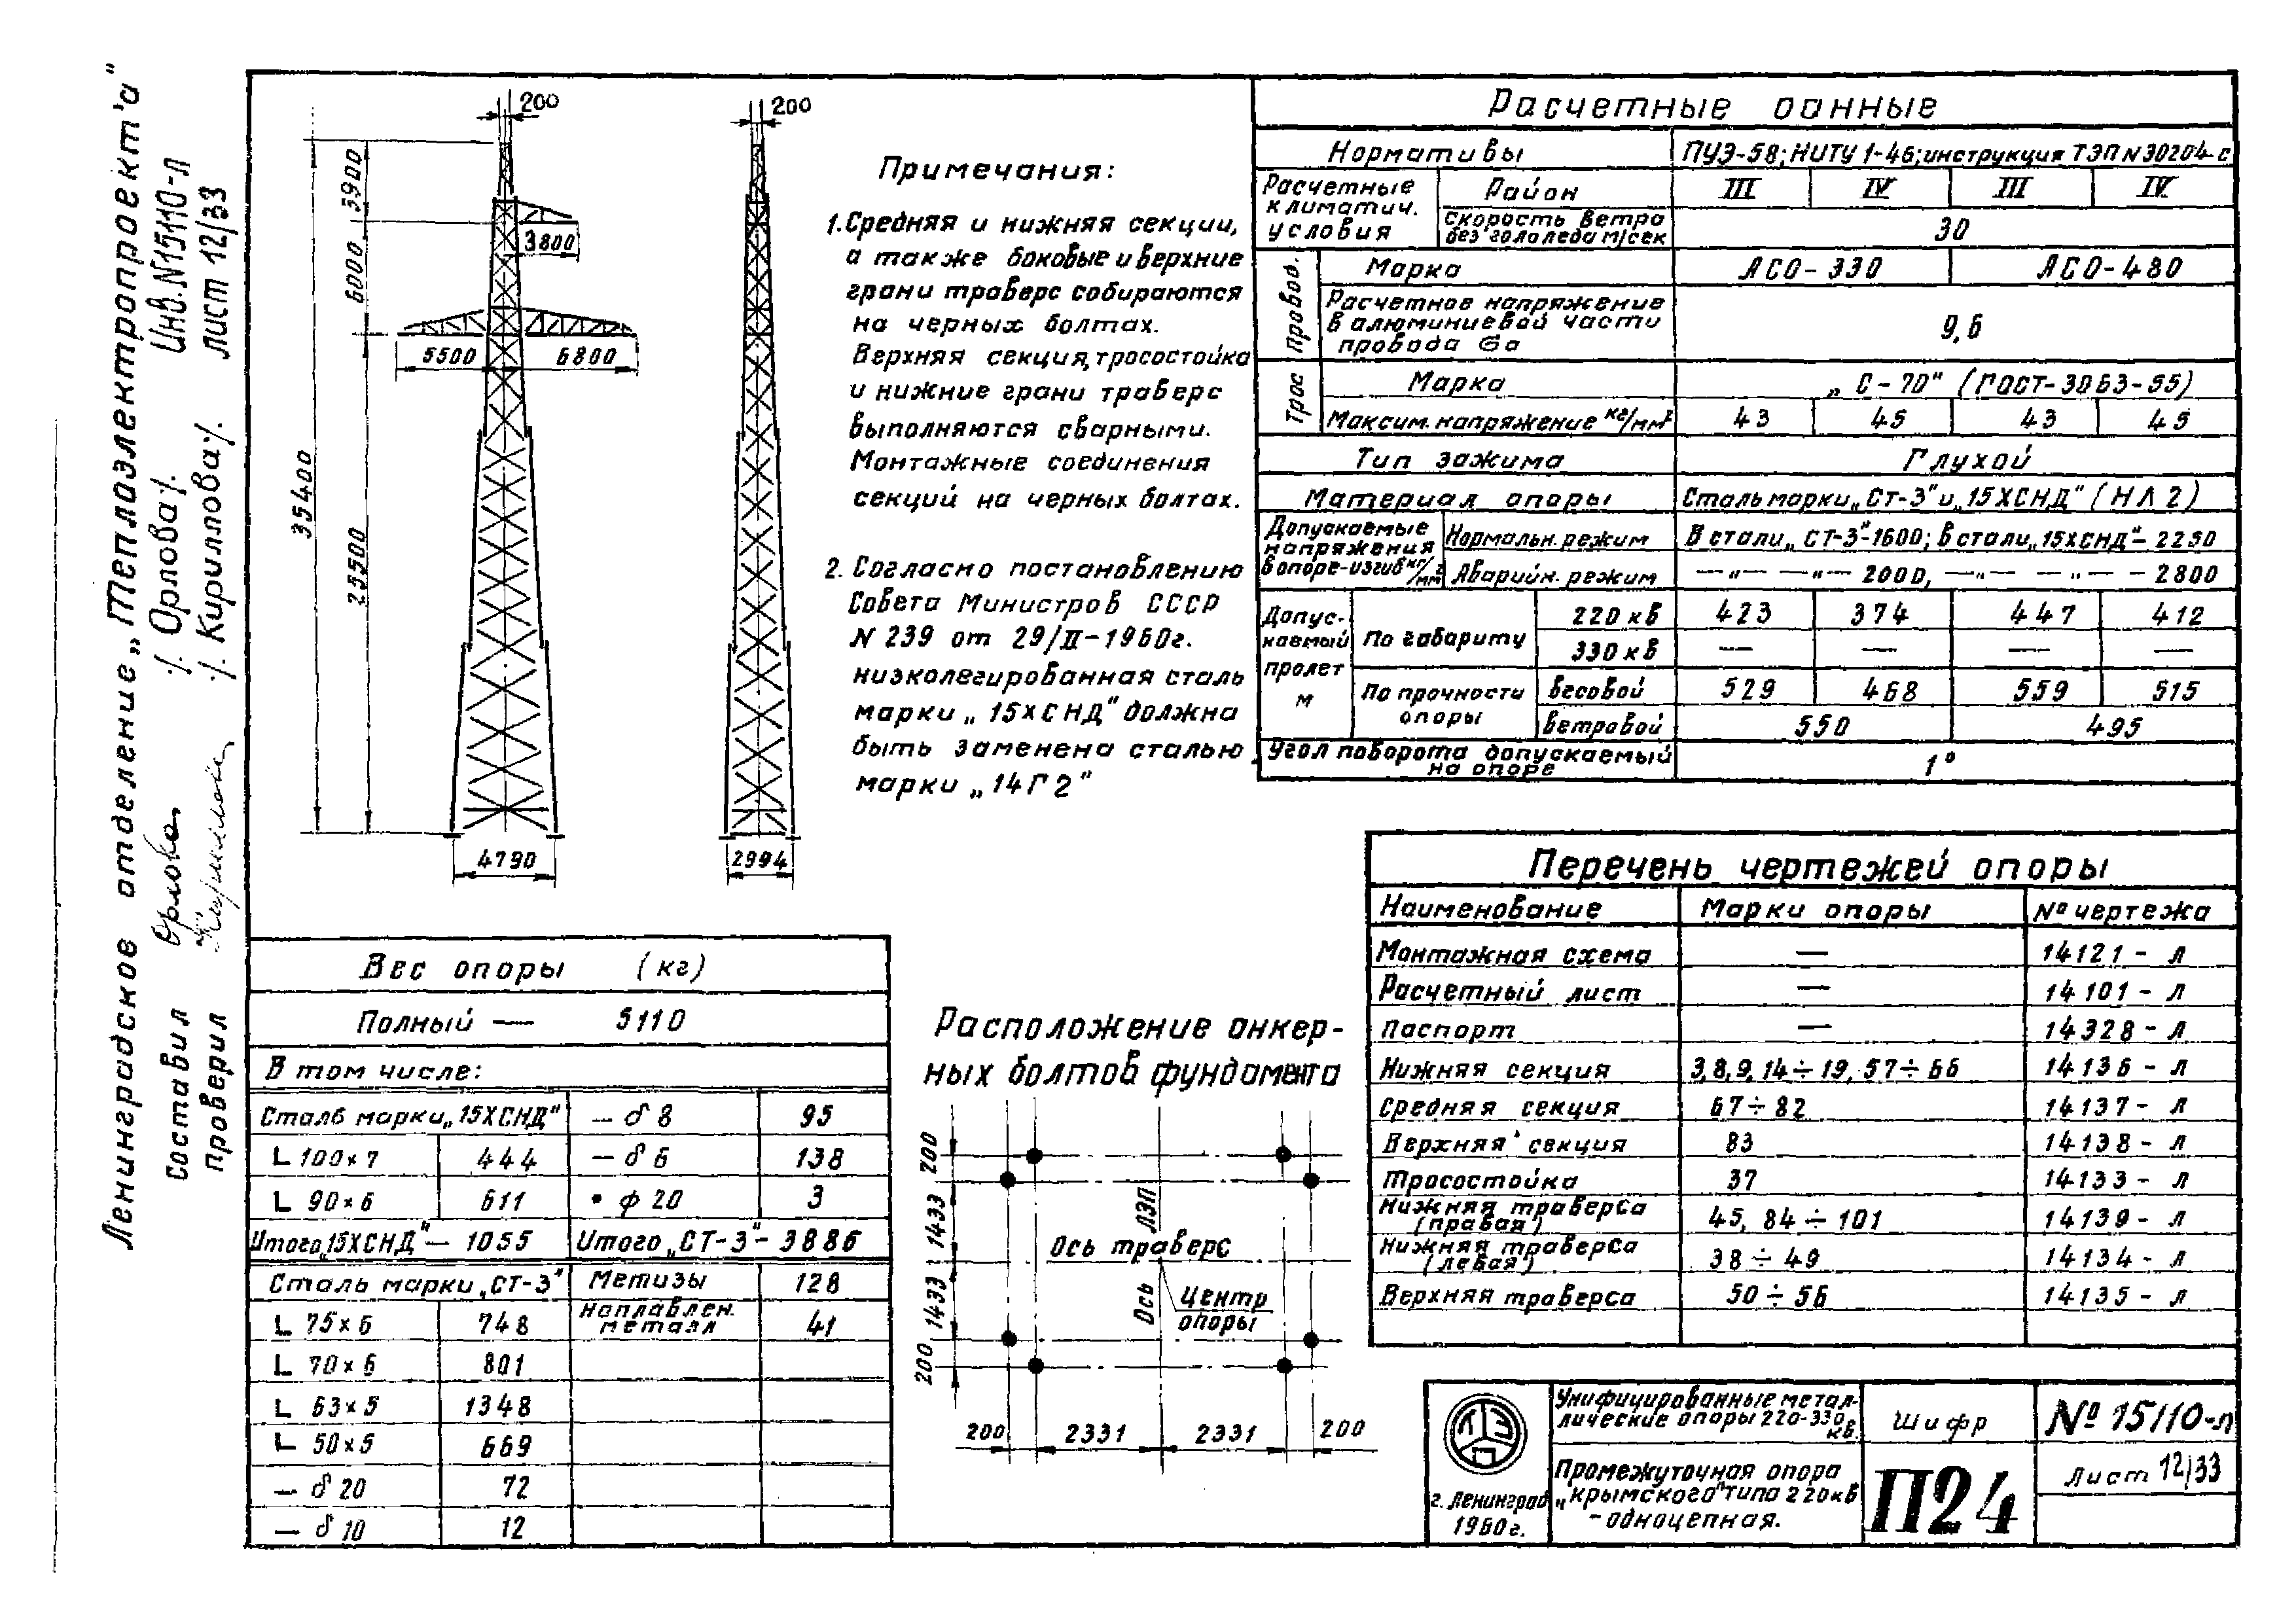 Ленинградское отделение „Теплоэлектропроект'а"
Составил Орлова /. Орлова /.
Проверил /. Кириллова /.
Инв. N15110-л
лист 12/33
200
200
3900
3800
6000
5500
6800
35400
25500
4790
2994
Примечания:
1. Средняя и нижняя секции,
а также боковые и верхние
грани траверс собираются
на черных болтах.
Верхняя секция, тросостойка
и нижние грани траверс
выполняются сварными.
Монтажные соединения
секций на черных болтах.
2. Согласно постановлению
Совета Министров СССР
N 239 от 29/II-1960г.
низколегированная сталь
марки „15ХСНД" должна
быть заменена сталью
марки „14Г2"
Расчетные данные
Нормативы ПУЭ-58; НИТУ 1-46; инструкция ТЭП N30204-с
Расчетные климатич. условия Район III IV III IV
Скорость ветра без гололеда м/сек 30
Провод. Марка АСО-330 АСО-480
Расчетное напряжение
в алюминиевой части
провода бa 9,6
Трос Марка „С-70" (ГОСТ-3063-55)
Максим. напряжение кг/мм² 43 45 43 45
Тип зажима Глухой
Материал опоры Сталь марки „Ст-3" и „15ХСНД" (НЛ2)
Допускаемые напряжения в опоре-изгиб кг/мм² Нормальн. режим В стали „СТ-3"-1600; в стали „15ХСНД"-2250
Аварийн. режим —"— —"— 2000, —"— — "— — 2800
Допускаемый пролет м По габариту 220 кВ 423 374 447 412
330 кВ — — — —
По прочности опоры Весовой 529 468 559 515
Ветровой 550 495
Угол поворота допускаемый
на опоре 1°
Перечень чертежей опоры
Наименование Марки опоры № чертежа
Монтажная схема — 14121-л
Расчетный лист — 14101-л
Паспорт — 14328-л
Нижняя секция 3,8,9,14÷19,57÷66 14136-л
Средняя секция 67÷82 14137-л
Верхняя секция 83 14138-л
Тросостойка 37 14133-л
Нижняя траверса (правая) 45, 84÷101 14139-л
Нижняя траверса (левая) 38÷49 14134-л
Верхняя траверса 50÷56 14135-л
Вес опоры (кг)
Полный — 5110
В том числе:
Сталь марки „15ХСНД" — δ 8 95
L 100×7 444 — δ 6 138
L 90×6 611 • ф 20 3
Итого „15ХСНД" — 1055 Итого „СТ-3" - 3886
Сталь марки „СТ-3" Метизы 128
L 75×6 748 Наплавлен. металл 41
L 70×6 801
L 63×5 1348
L 50×5 669
— δ 20 72
— δ 10 12
Расположение анкер-
ных болтов фундамента
200
1433
1433
200
Ось ЛЭП
Ось траверс
Центр
опоры
200 2331 2331 200
ТЭП
г. Ленинград
1960г.
Унифицированные метал-
лические опоры 220-330
кв.
Промежуточная опора
„крымского" типа 220кв
-одноцепная.
Шифр
П24
№ 15110-л
Лист 12/33